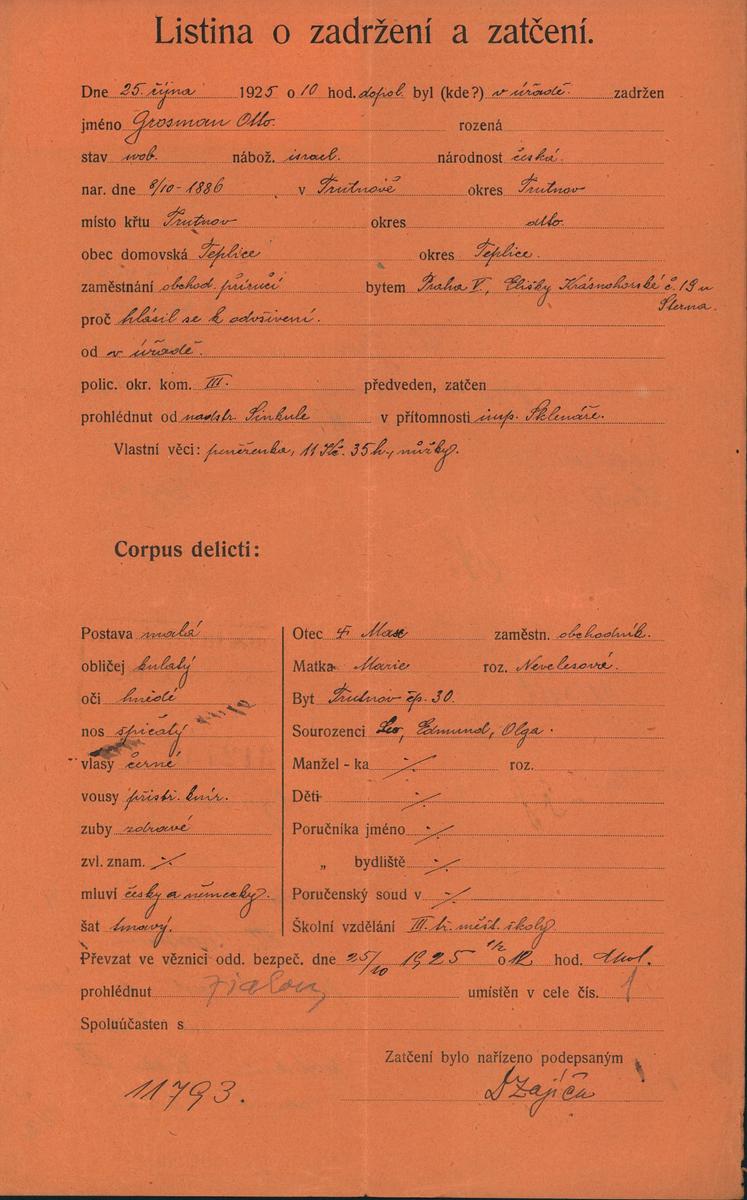 Listina o zadržení a zatčení.
Dne 25. října 1925 o 10 hod. dopol. byl (kde?) v úřadě. zadržen
jméno Grosman Otto. rozená
stav svob. nábož. israel. národnost česká.
nar. dne 8/10-1886 v Trutnově okres Trutnov
místo křtu Trutnov okres dtto.
obec domovská Teplice okres Teplice.
zaměstnání obchod. příručí bytem Praha V., Elišky Krásnohorské č. 19 u
Sterna.
proč hlásil se k odvšivení.
od v úřadě.
polic. okr. kom. III. předveden, zatčen
prohlédnut od nadstr. Sinkule v přítomnosti insp. Sklenáře.
Vlastní věci: peněženka, 11 Kč. 35 h., nůžky.
Corpus delicti:
Postava malá
obličej kulatý
oči hnědé
nos špičatý
vlasy černé
vousy přistř. knír.
zuby zdravé
zvl. znam. ·/·
mluví česky a německy.
šat tmavý.
Otec Max zaměstn. obchodník.
Matka Marie roz. Nevelesové.
Byt Trutnov čp. 30.
Sourozenci Leo, Edmund, Olga.
Manžel - ka ·/· roz.
Děti ·/·
Poručníka jméno ·/·
„ bydliště ·/·
Poručenský soud v ·/·
Školní vzdělání III. tř. měšt. školy
Převzat ve věznici odd. bezpeč. dne 25/10 1925 o 1/2 12 hod. dpol.
prohlédnut umístěn v cele čís. 1
Spoluúčasten s
Zatčení bylo nařízeno podepsaným
11793. DZajíček